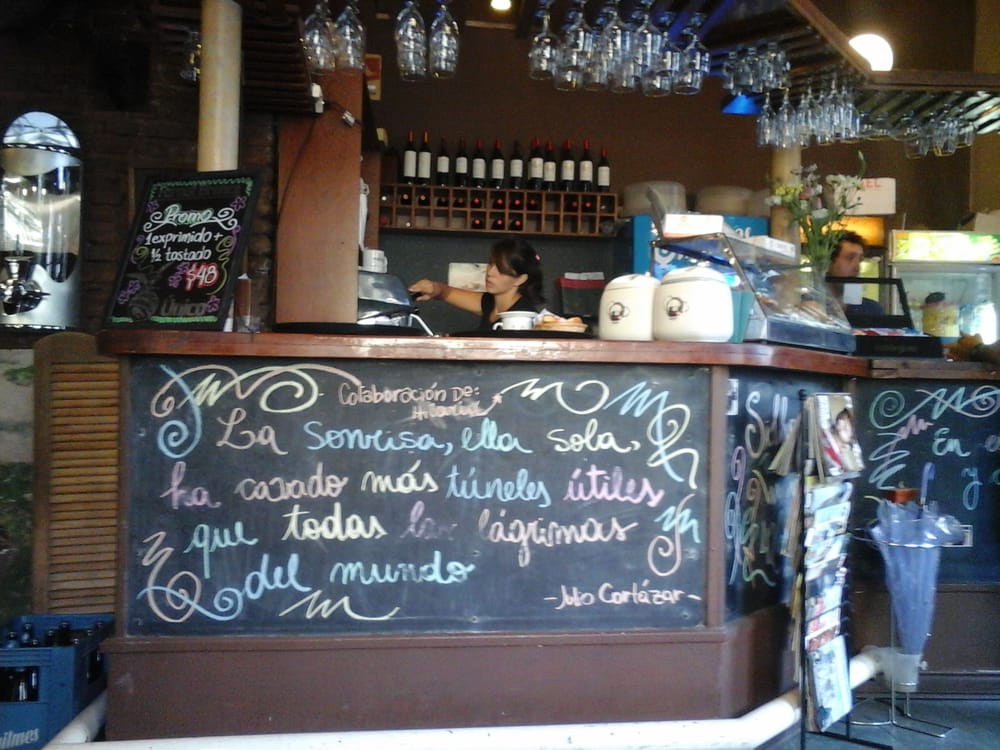 Promo
1 exprimido +
½ tostado
$48
Único
Colaboración de:
La sonrisa, ella sola,
ha cavado más túneles útiles
que todas las lágrimas
del mundo
- Julio Cortázar -
En e
y
ilmes